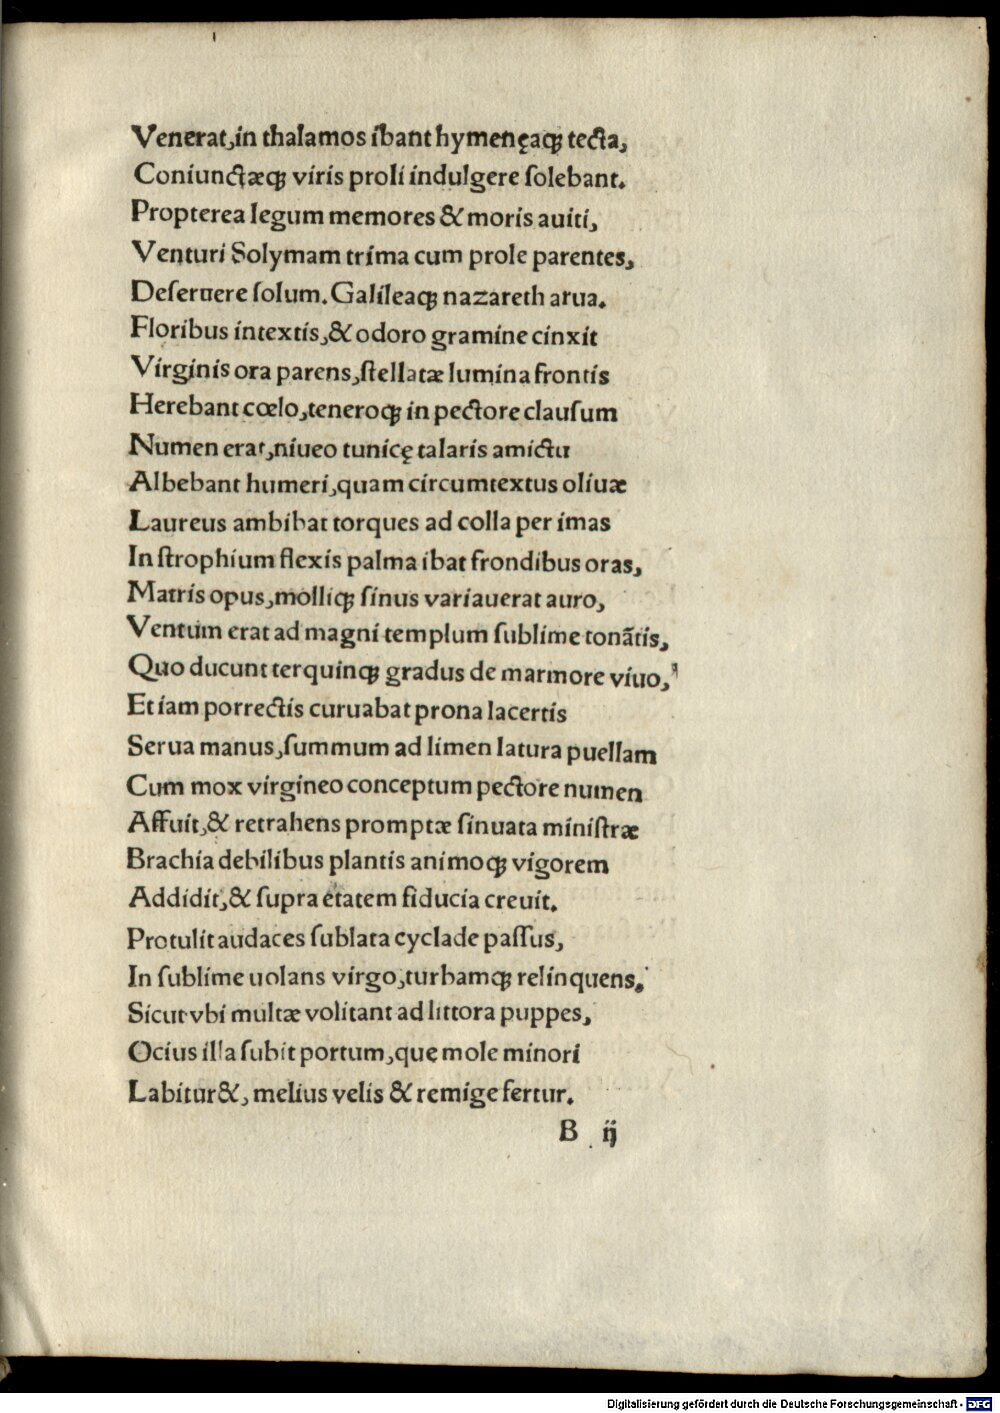 Venerat, in thalamos ibant hymenęaqꝫ tecta,
Coniunctæqꝫ viris proli indulgere ſolebant.
Propterea legum memores & moris auiti,
Venturi Solymam trima cum prole parentes,
Deſeruere ſolum. Galileaqꝫ nazareth arua.
Floribus intextis, & odoro gramine cinxit
Virginis ora parens, ſtellatæ lumina frontis
Herebant cœlo, teneroqꝫ in pectore clauſum
Numen erat, niueo tunicę talaris amictu
Albebant humeri, quam circumtextus oliuæ
Laureus ambibat torques ad colla per imas
In ſtrophium flexis palma ibat frondibus oras,
Matris opus, molliqꝫ ſinus variauerat auro,
Ventum erat ad magni templum ſublime tonãtis,
Quo ducunt terquinqꝫ gradus de marmore viuo,
Et iam porrectis curuabat prona lacertis
Serua manus, ſummum ad limen latura puellam
Cum mox virgineo conceptum pectore numen
Affuit, & retrahens promptæ ſinuata miniſtræ
Brachia debilibus plantis animoqꝫ vigorem
Addidit, & ſupra etatem fiducia creuit.
Protulit audaces ſublata cyclade paſſus,
In ſublime uolans virgo, turbamqꝫ relinquens.
Sicut vbi multæ volitant ad littora puppes,
Ocius illa ſubit portum, que mole minori
Labitur &, melius velis & remige fertur.
B ij
Digitalisierung gefördert durch die Deutsche Forschungsgemeinschaft - DFG